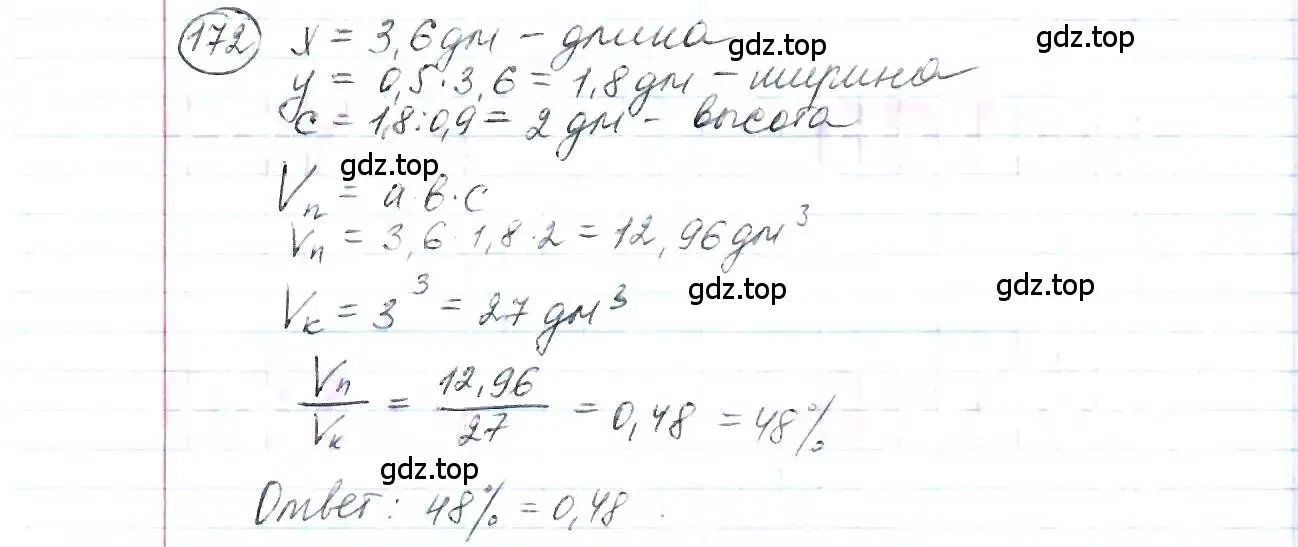 172 x = 3,6 дм - длина gdz.top gdz.top
y = 0,5 · 3,6 = 1,8 дм - ширина
c = 1,8 : 0,9 = 2 дм - высота
gdz.top
Vп = a · в · c
Vп = 3,6 · 1,8 · 2 = 12,96 дм³
gdz.top gdz.top
Vк = 3³ = 27 дм³
Vп/Vк = 12,96/27 = 0,48 = 48%
gdz.top
Ответ: 48% = 0,48.